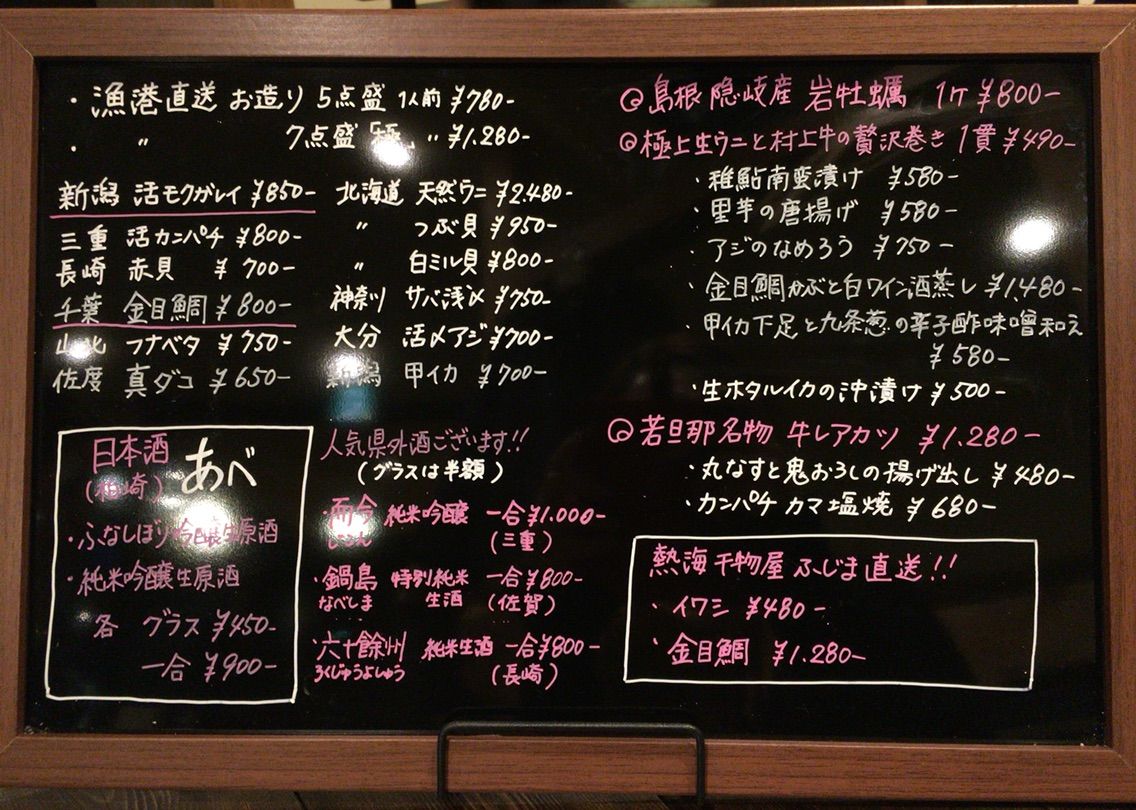 ・漁港直送 お造り 5点盛 1人前 ¥780-
・ 〃 7点盛「極」 〃 ¥1.280-
新潟 活モクガレイ ¥850-
三重 活カンパチ ¥800-
長崎 赤貝 ¥700-
千葉 金目鯛 ¥800-
山北 フナベタ ¥750-
佐度 真ダコ ¥650-
北海道 天然ウニ ¥2.480-
〃 つぶ貝 ¥950-
〃 白ミル貝 ¥800-
神奈川 サバ浅〆 ¥750-
大分 活〆アジ ¥700-
新潟 甲イカ ¥700-
日本酒 あべ
(柏崎)
・ふなしぼり吟醸生原酒
・純米吟醸生原酒
各 グラス ¥450-
一合 ¥900-
人気県外酒ございます!!
(グラスは半額)
・而今 純米吟醸 一合¥1.000-
じこん (三重)
・鍋島 特別純米生酒 一合¥800-
なべしま (佐賀)
・六十餘州 純米生酒 一合¥800-
ろくじゅうよしゅう (長崎)
◎島根 隠岐産 岩牡蠣 1ケ ¥800-
◎極上生ウニと村上牛の贅沢巻き 1貫 ¥490-
・稚鮎南蛮漬け ¥580-
・里芋の唐揚げ ¥580-
・アジのなめろう ¥750-
・金目鯛かぶと白ワイン酒蒸し ¥1.480-
・甲イカ下足と九条葱の辛子酢味噌和え
¥580-
・生ホタルイカの沖漬け ¥500-
◎若旦那名物 牛レアカツ ¥1.280-
・丸なすと鬼おろしの揚げ出し ¥480-
・カンパチ カマ塩焼 ¥680-
熱海 干物屋 ふじま直送!!
・イワシ ¥480-
・金目鯛 ¥1.280-